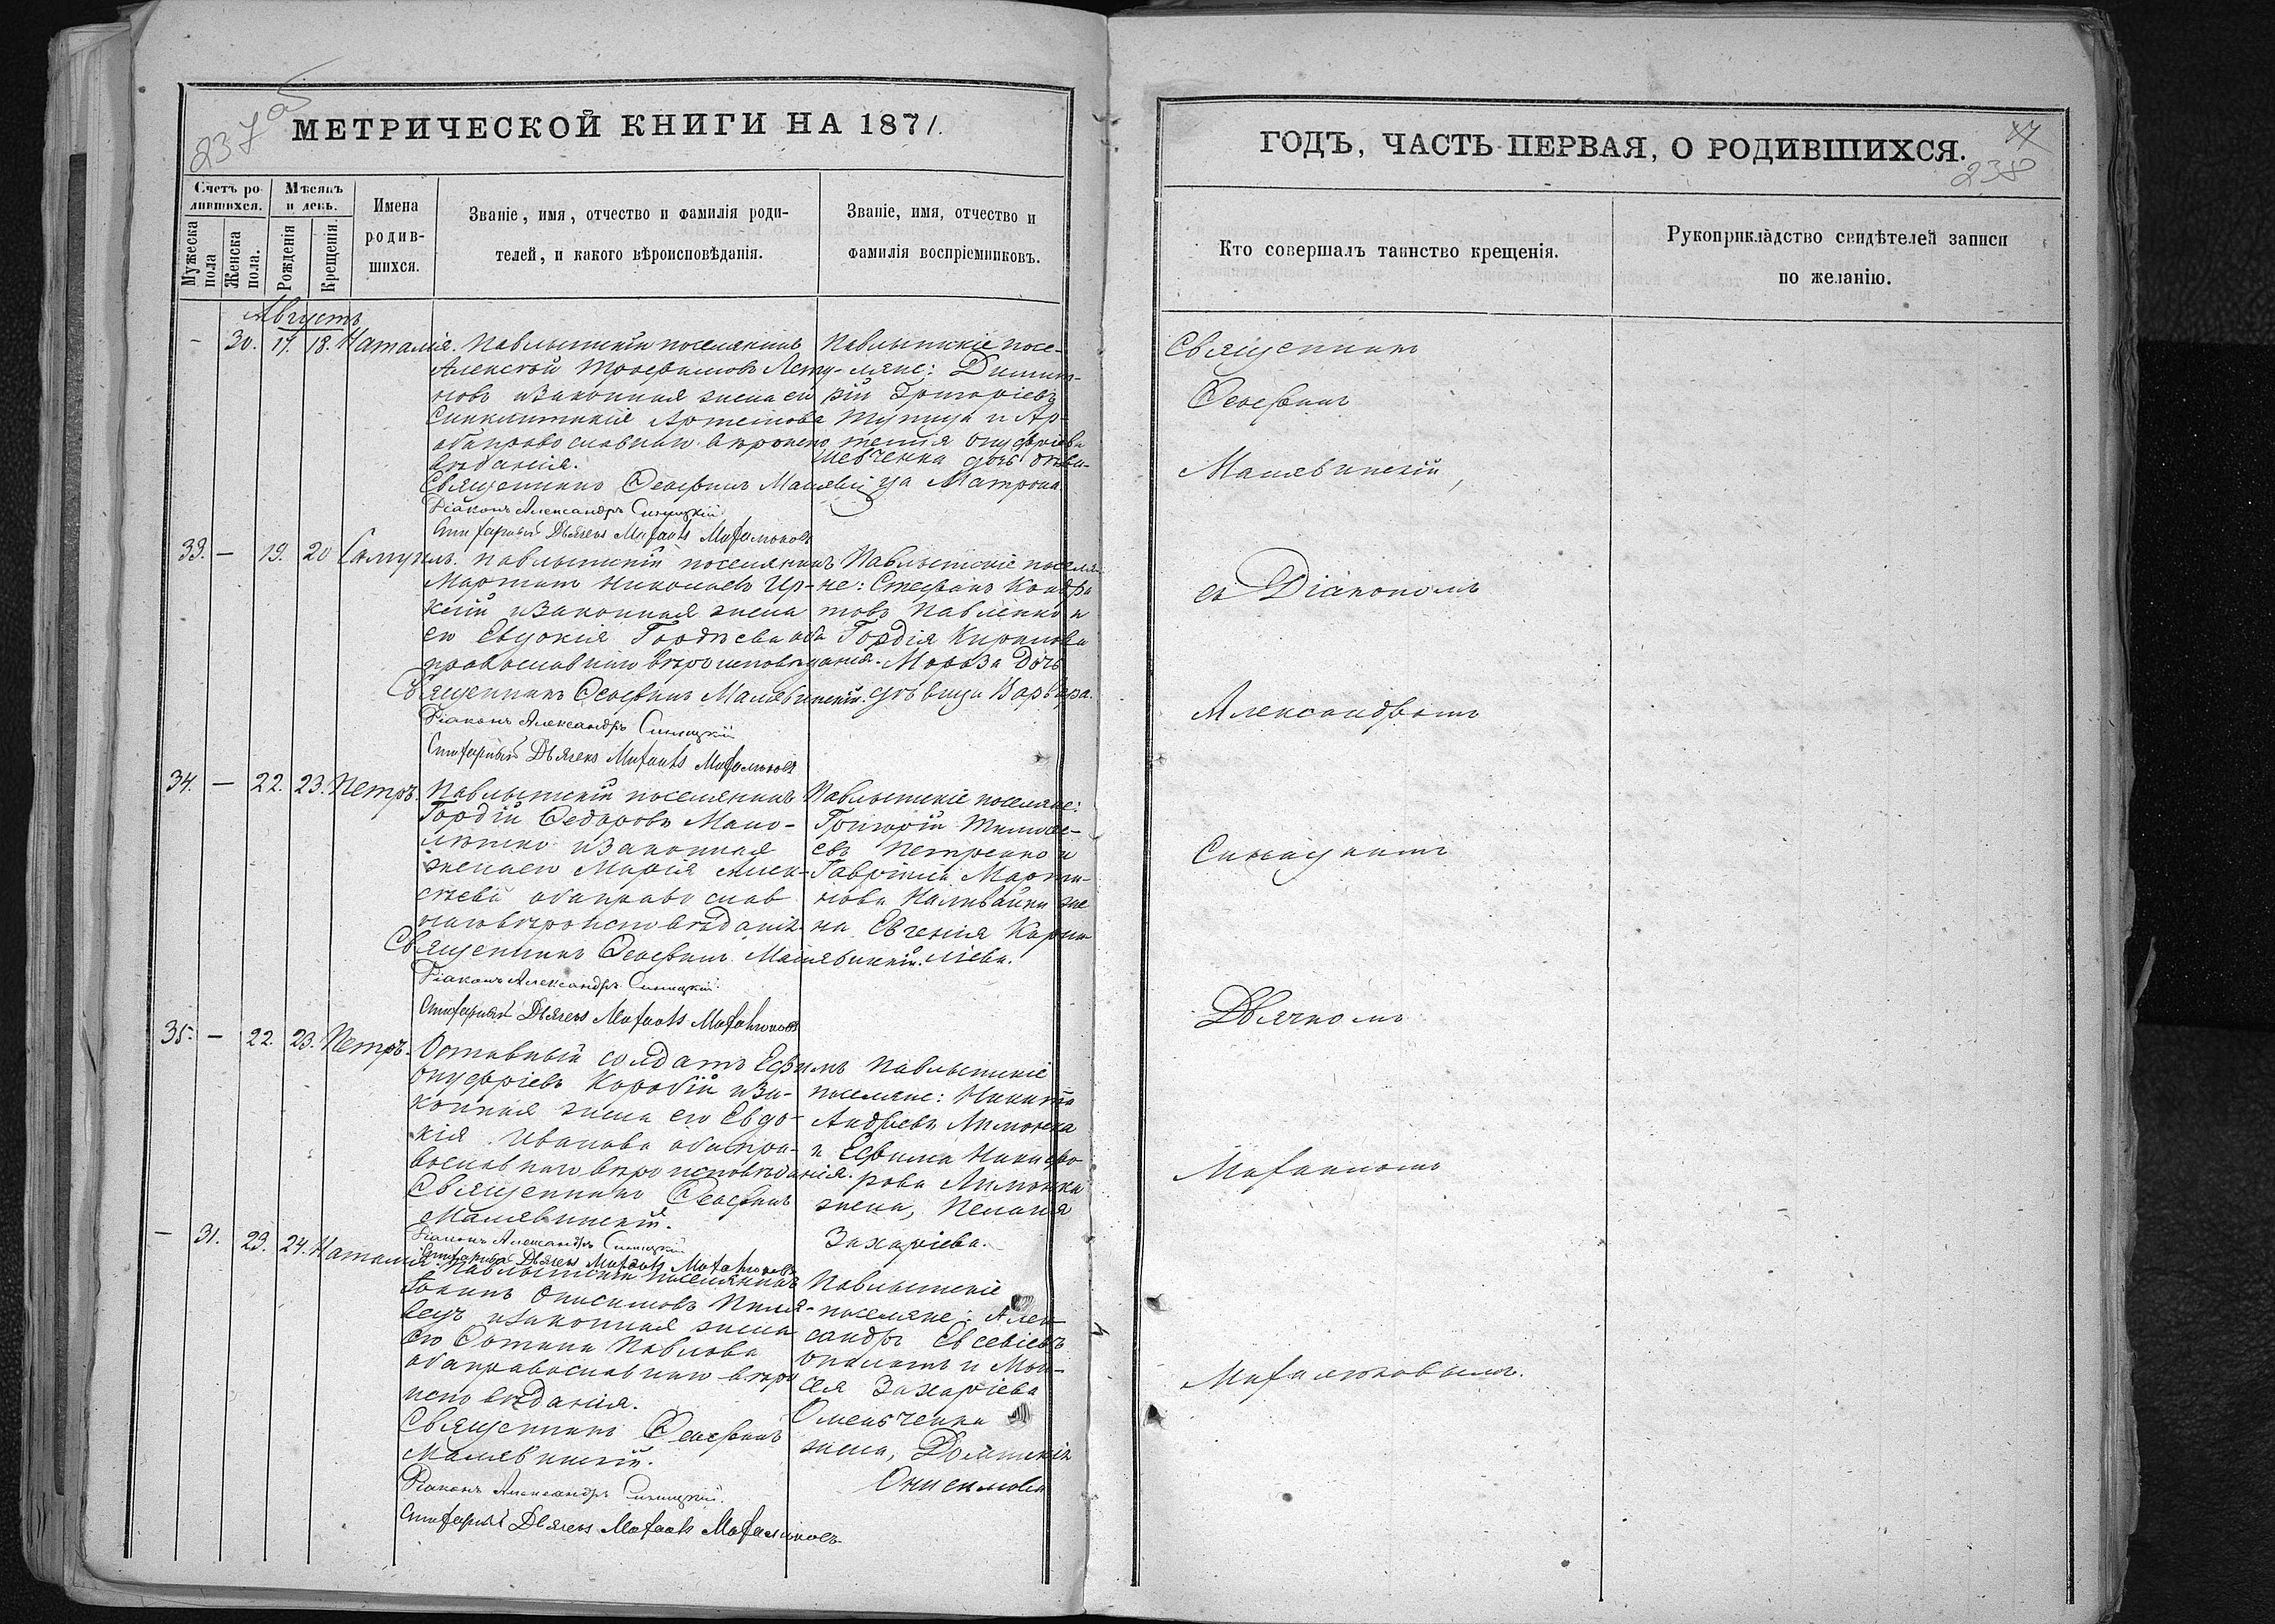 237 об
МЕТРИЧЕСКОЙ КНИГИ НА 1871.
Счетъ родившихся.
Мѣсяцъ и день.
Мужеска пола
Женска пола.
Рожденія
Крещенія
Имена родившихся.
Званіе, имя, отчество и фамилія родителей, и какого вѣроисповѣданія.
Званіе, имя, отчество и фамилія воспріемниковъ.
Августъ
- 30. 17. 18. Наталія.
Павлышскій поселянинъ
Алексѣй Трофимовъ
новъ и законная жена его
Синклитикія Артемова
оба православнаго вѣроиспо
вѣданія.
Священникъ Ѳеофанъ Маляви
Діаконъ Александръ Синицкій
Дьячекъ
Павлышскіе посе-
ляне: Димит-
рій Григоріевъ
и Ар-
темія Онуфріева
Шевченка дочь дѣви-
ца Матрона.
33. — 19. 20 Самуилъ.
Павлышскій поселянинъ
Мартинъ Николаевъ Ир-
кній и законная жена
его Евдокія Гордѣева оба
православнаго вѣроисповѣданія.
Священникъ Ѳеофанъ Малявинскій.
Діаконъ Александръ Синицкій
Дьячекъ
Павлышскіе поселя-
не: Стефанъ Кондра
товъ Павленко и
Гордія Кирилова
Мороза дочь
дѣвица Варвара.
34. — 22. 23. Петръ.
Павлышскій поселянинъ
Гордій Ѳедоровъ Мано-
и законная
жена его Марія Алек-
сѣева оба православ
наго вѣроисповѣданія.
Священникъ Ѳеофанъ Малявинскій.
Діаконъ Александръ Синицкій
Дьячекъ
Павлышскіе поселяне:
Григорій Тимоѳе-
евъ Петренко и
Гавріила Марти-
нова Наливайки же
на Евгенія Корни
ліева.
35. — 22. 23. Петръ.
Отставный солдатъ Ефимъ
Онуфріевъ Коробій и за-
конная жена его Евдо-
кія Иванова оба пра-
вославнаго вѣроисповѣданія.
Священникъ Ѳеофанъ
Малявинскій.
Діаконъ Александръ Синицкій
Дьячекъ
Павлышскіе
поселяне: Никита
Андреевъ Лимонка
и Ефима Никифо
рова Лимонка
жена, Пелагія
Захаріева.
— 31. 23. 24. Наталія.
Павлышскій поселянинъ
Іоаннъ Онисимовъ Пиля-
вецъ и законная жена
его Фотина Павлова
оба православнаго вѣро
исповѣданія.
Священникъ Ѳеофанъ
Малявинскій.
Діаконъ Александръ Синицкій.
Дьячекъ
Павлышскіе
поселяне: Алек
сандръ Евсевіевъ
и Мои-
сея Захаріева
Омельченка
жена, Домникія
Онисимова
ГОДЪ, ЧАСТЬ ПЕРВАЯ, О РОДИВШИХСЯ.
238
Кто совершалъ таинство крещенія.
Рукоприкладство свидѣтелей записи по желанію.
Священникъ
Ѳеофанъ
Малявинскій,
съ Діакономъ
Александромъ
Синицкимъ
Дьячкомъ